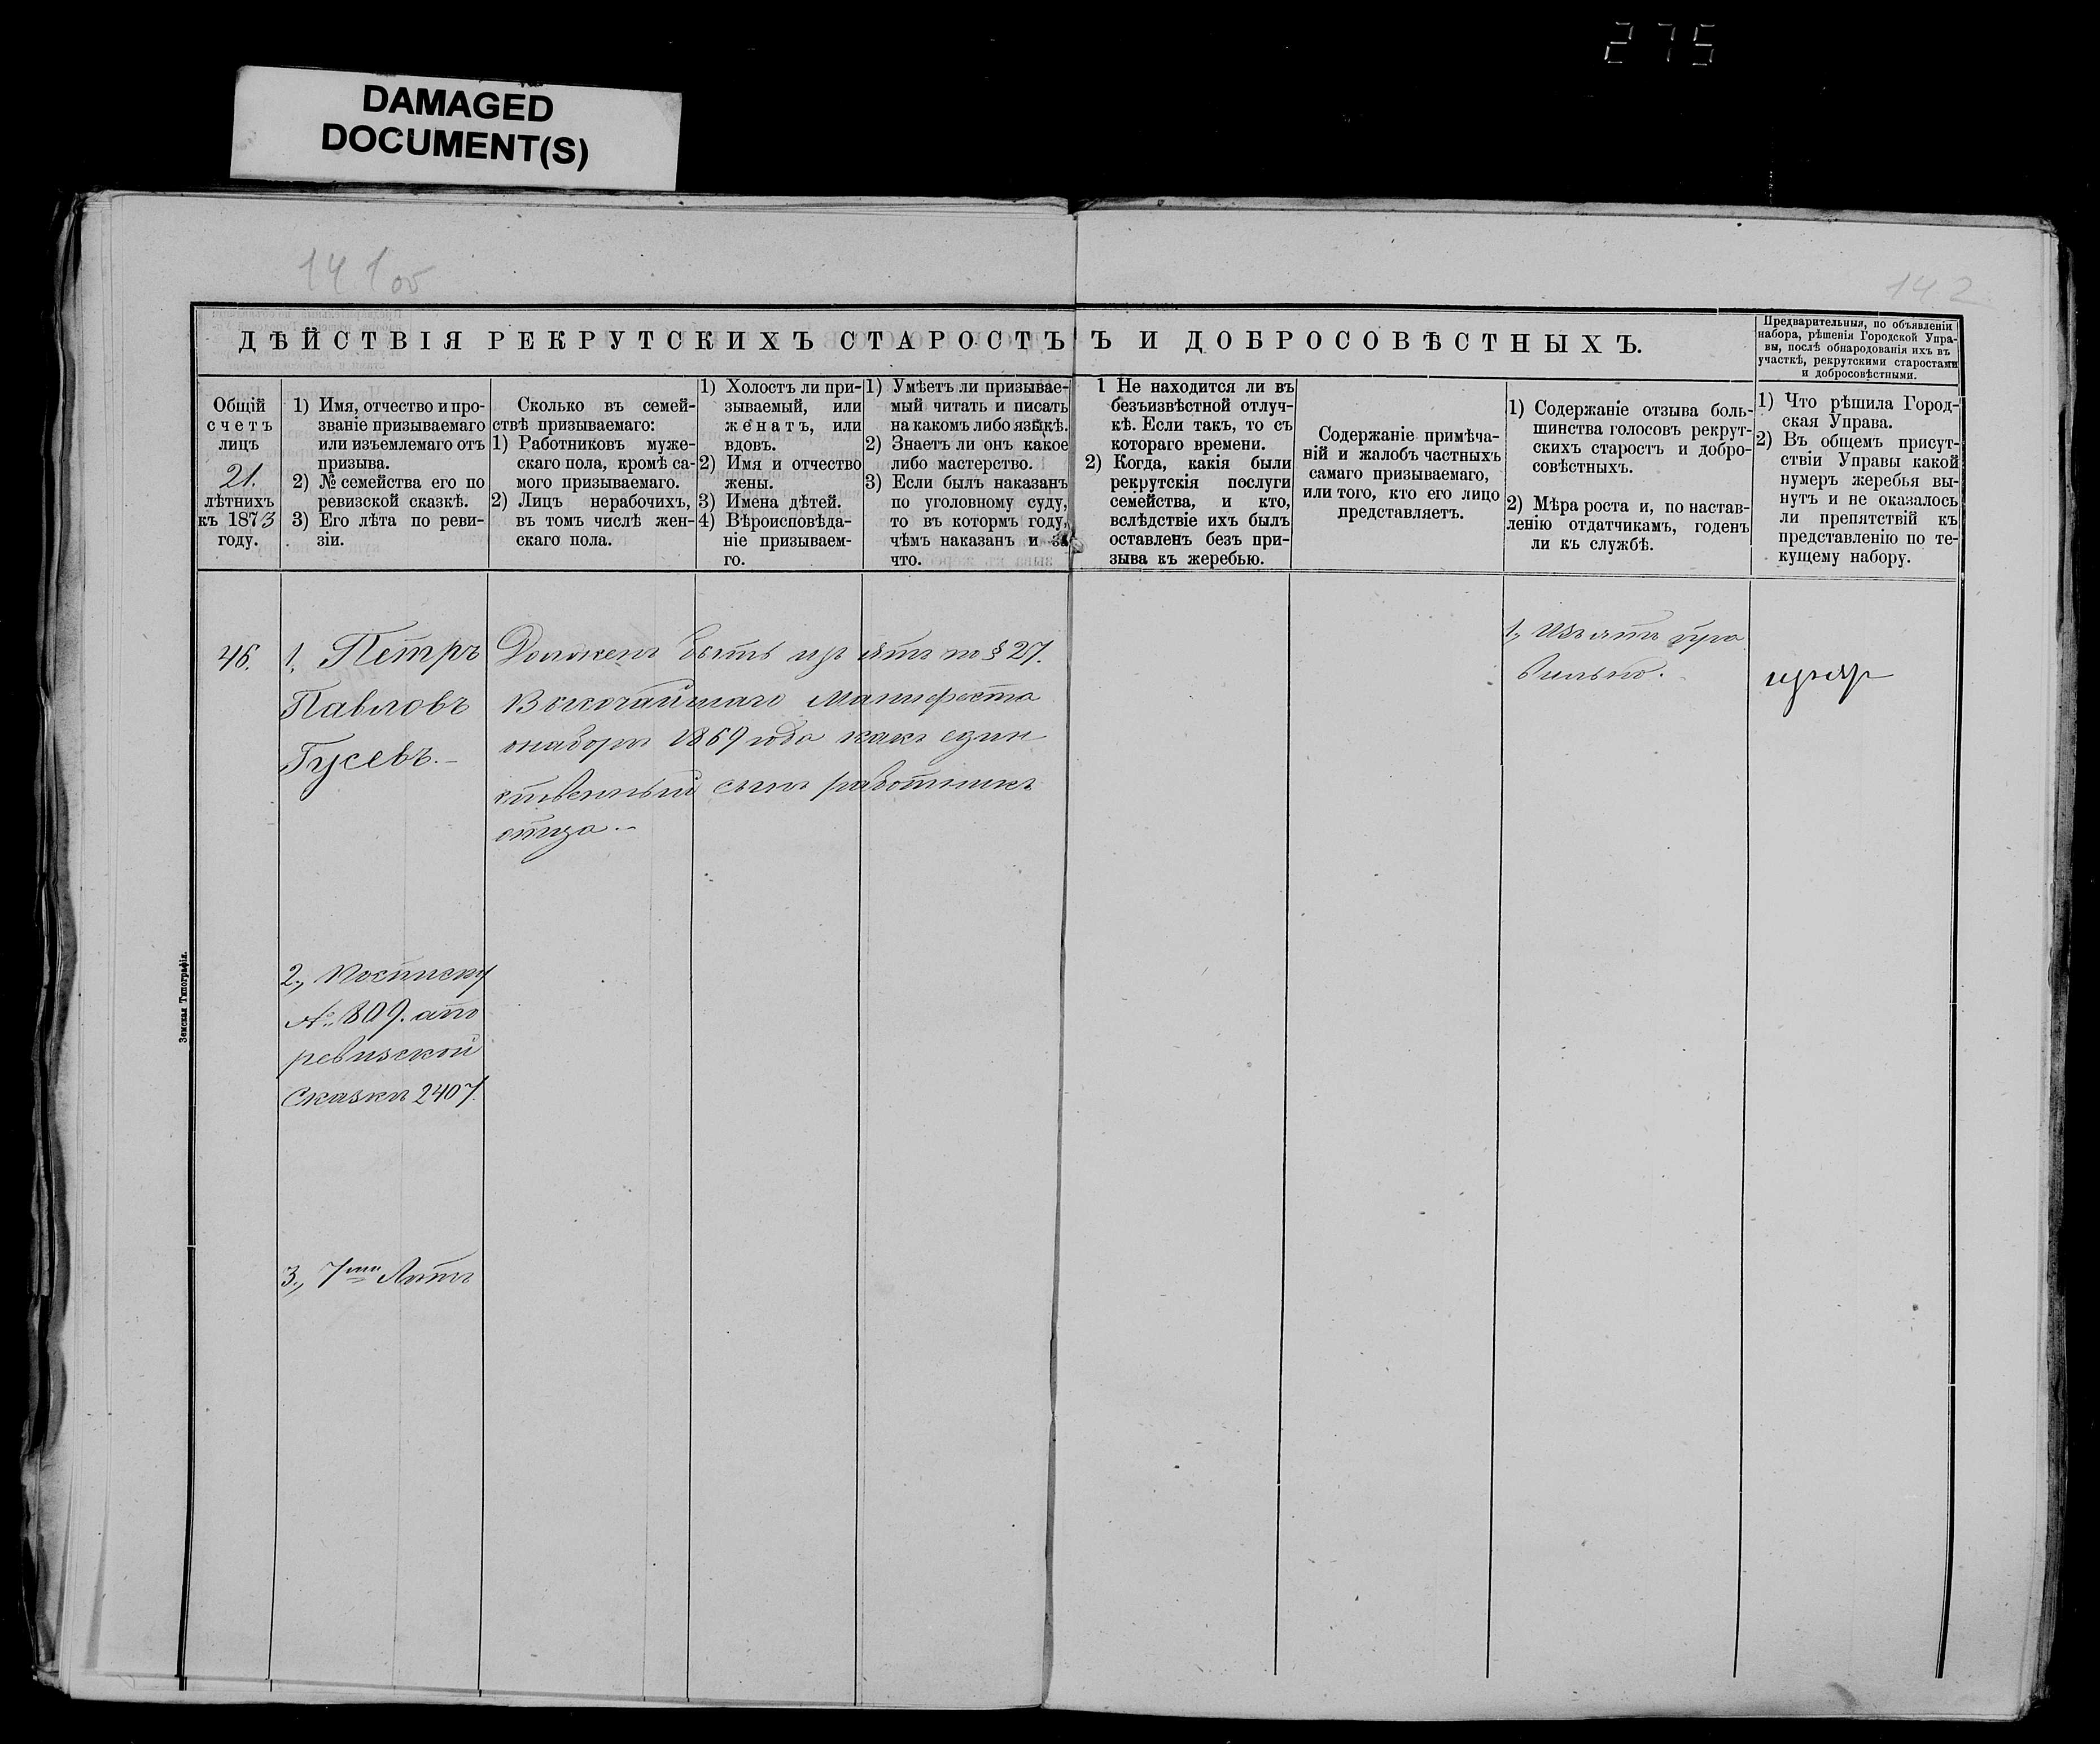 275
DAMAGED
DOCUMENT(S)
141 об
142
ДѢЙСТВІЯ РЕКРУТСКИХЪ СТАРОСТЪ
Ъ И ДОБРОСОВѢСТНЫХЪ.
Предварительныя, по объявленіи
набора, рѣшенія Городской Упра-
вы, послѣ обнародованія ихъ въ
участкѣ, рекрутскими старостами
и добросовѣстными.
Общій
счетъ
лицъ
21.
лѣтнихъ
къ 1873
году.
1) Имя, отчество и про-
званіе призываемаго
или изъемлемаго отъ
призыва.
2) № семейства его по
ревизской сказкѣ.
3) Его лѣта по реви-
зіи.
Сколько въ семей-
ствѣ призываемаго:
1) Работниковъ муже-
скаго пола, кромѣ са-
мого призываемаго.
2) Лицъ нерабочихъ,
въ томъ числѣ жен-
скаго пола.
1) Холостъ ли при-
зываемый, или
женатъ, или
вдовъ.
2) Имя и отчество
жены.
3) Имена дѣтей.
4) Вѣроисповѣда-
ніе призываем-
го.
1) Умѣетъ ли призывае-
мый читать и писать
на какомъ либо языкѣ.
2) Знаетъ ли онъ какое
либо мастерство.
3) Если былъ наказанъ
по уголовному суду,
то въ котормъ году,
чѣмъ наказанъ и за
что.
1 Не находится ли въ
безъизвѣстной отлуч-
кѣ. Если такъ, то съ
котораго времени.
2) Когда, какія были
рекрутскія послуги
семейства, и кто,
вслѣдствіе ихъ былъ
оставленъ безъ при-
зыва къ жеребью.
Содержаніе примѣча-
ній и жалобъ частныхъ
самаго призываемаго,
или того, кто его лицо
представляетъ.
1) Содержаніе отзыва боль-
шинства голосовъ рекрут-
скихъ старостъ и добро-
совѣстныхъ.
2) Мѣра роста и, по настав-
ленію отдатчикамъ, годенъ
ли къ службѣ.
1) Что рѣшила Город-
ская Управа.
2) Въ общемъ присут-
ствіи Управы какой
нумеръ жеребья вы-
нутъ и не оказалось
ли препятствій къ
представленію по те-
кущему набору.
46.
1, Петръ
Павловъ
Гусевъ.–
Долженъ быть изъятъ по § 27.
Высочайшаго Манифеста
онаборѣ 1869 года какъ един
ственный сынъ работникъ
отца.–
1, Изъятъ пра
вильно.
2, Посписку
№ 809. апо
ревизской
Сказкѣ 2407.
3, 7ми Лѣтъ
Земская Типографія.